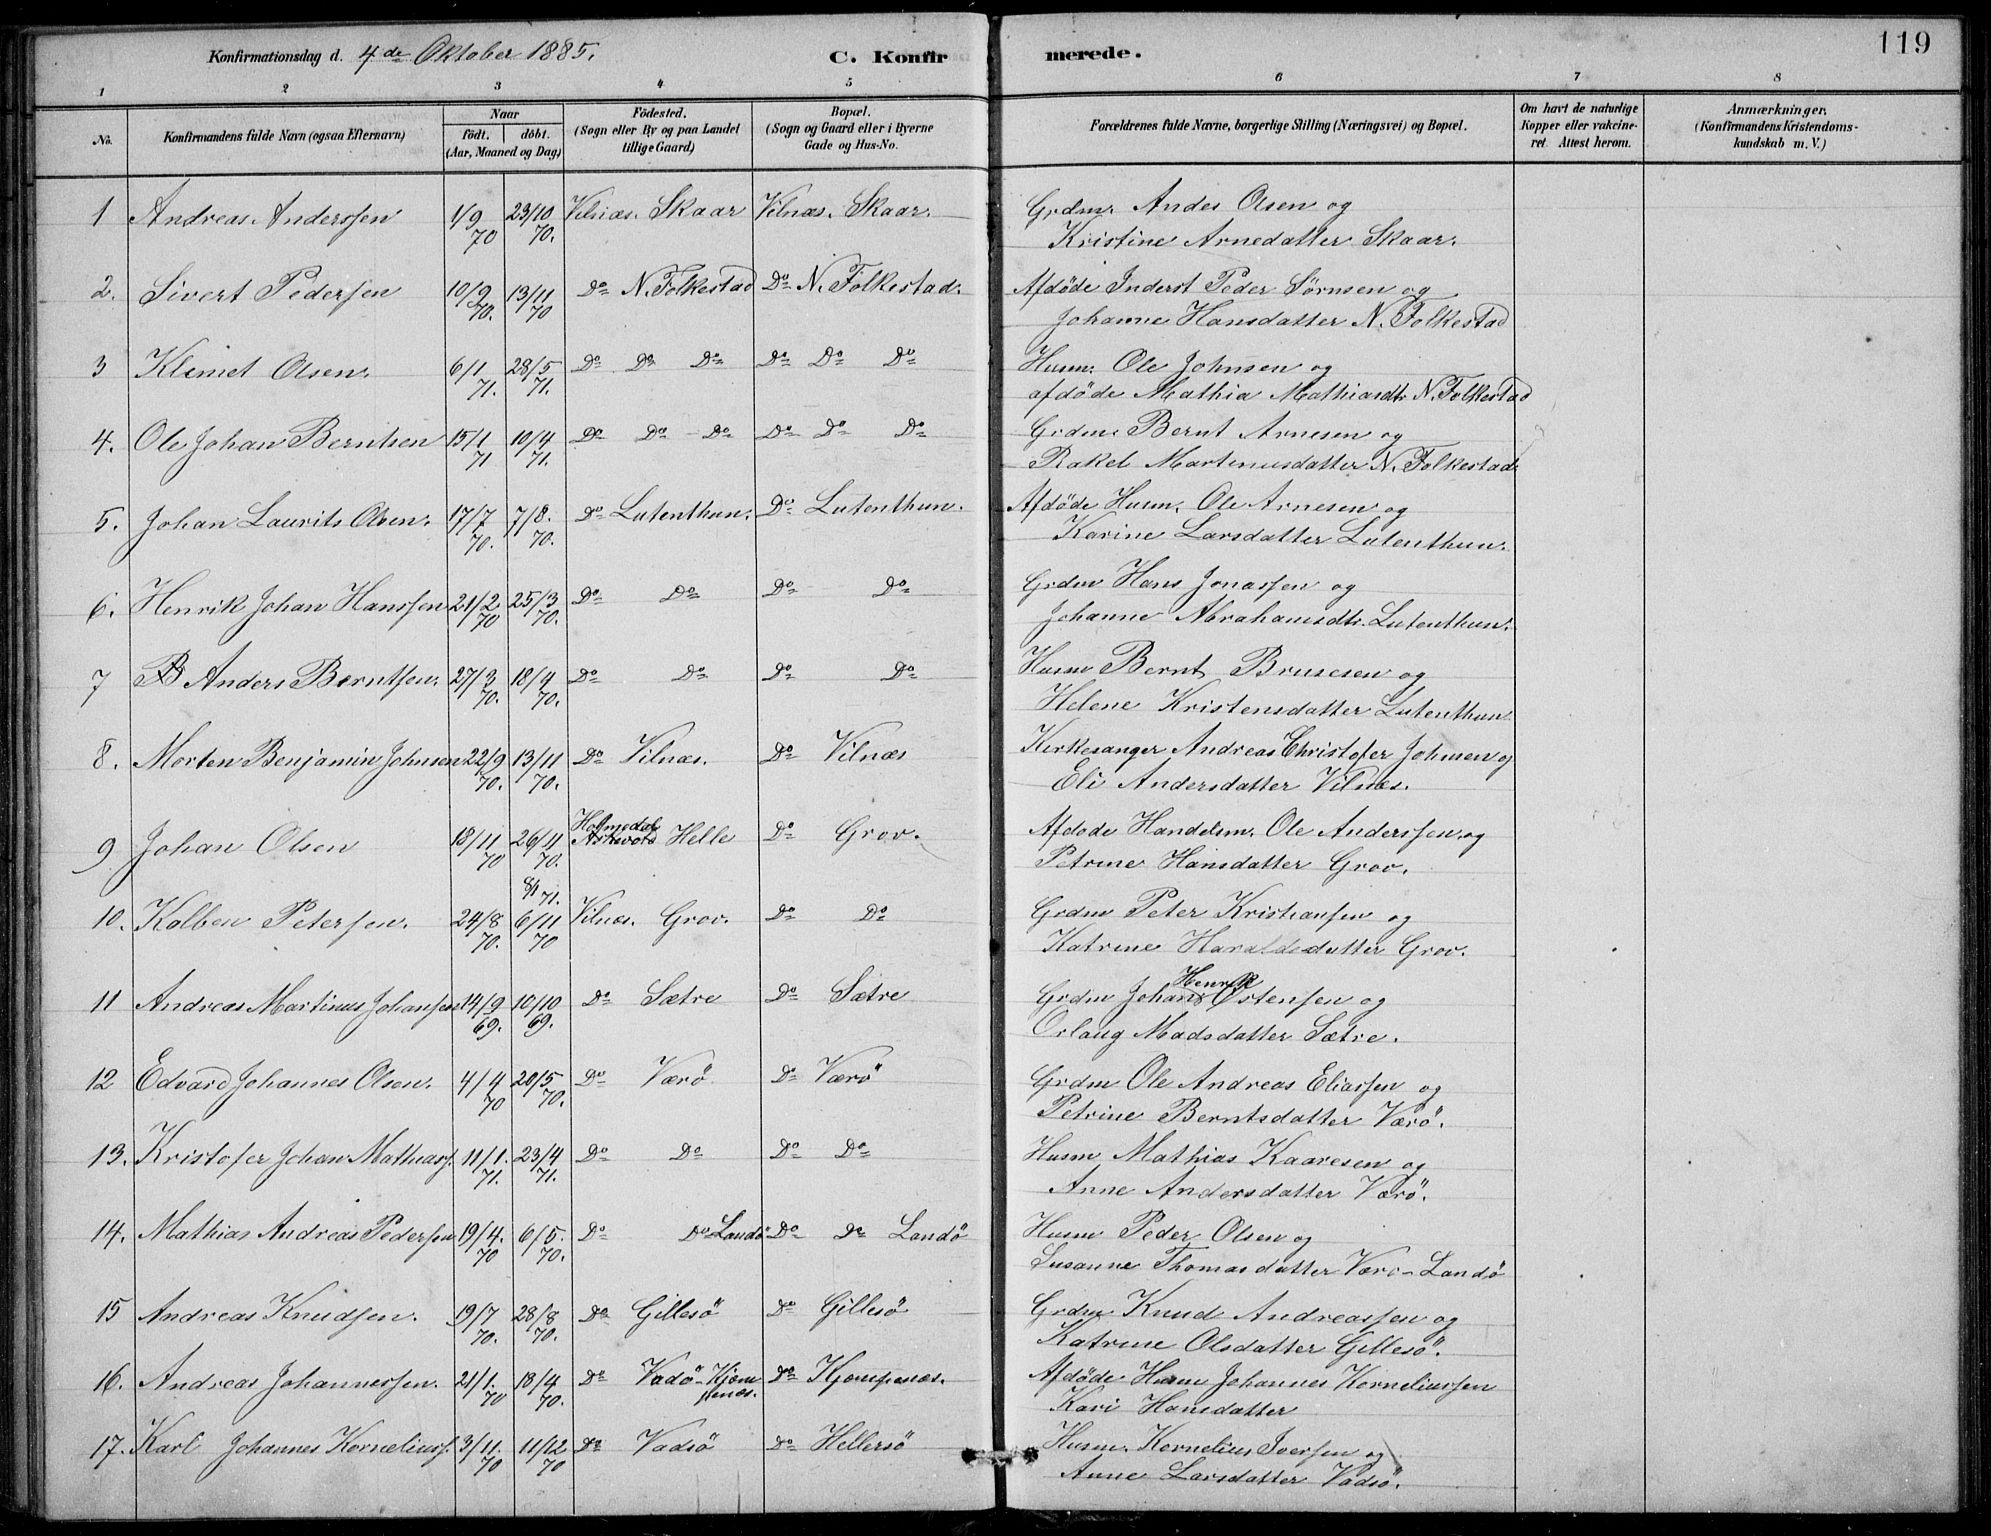 119
Konfirmationsdag d. 4de Oktober 1885. C. Konfirmerede.
1 2 3 4 5 6 7 8
No. Konfirmandens fulde Navn (ogsaa Efternavn) Naar født. døbt. (Aar, Maaned og Dag) Födested. (Sogn eller By og paa Landet tillige Gaard) Bopæl. (Sogn og Gaard eller i Byerne Gade og Hus-No. Forældrenes fulde Navne, borgerlige Stilling (Næringsvei) og Bopæl. Om havt de naturlige Kopper eller vakcineret. Attest herom. Anmærkninger. (Konfirmandens Kristendomskundskab m. V.)
1 Andreas Anderssen 1/9 70 23/10 70. Vilnæs. Skaar Vilnæs. Skaar. Grdm. Andes Olsen og
Kristine Arnedatter Skaar.
2. Sivert Pedersen 10/9 70. 13/11 70 Do N. Folkestad Do N. Folkestad. Afdøde Inderst Peder Sørnsen og
Johanne Hansdatter N. Folkestad
3 Klemet Olsen. 6/1 71. 28/5 71. Do Do Do Do Do Do Husm. Ole Johnsen og
afdøde Mathia Mathiasdtr N. Folkestad
4. Ole Johan Berntsen 15/1 71 10/4 71. Do Do Do Do Do Do Grdm. Bernt Arnesen og
Rakel Martinusdatter N. Folkestad.
5. Johan Laurits Olsen. 17/7 70. 7/8. 70. Do Lutenthun. Do Lutenthun. Afdøde Husm. Ole Arnesen og
Karine Larsdatter Lutenthun.
6. Henrik Johan Hanssen 21/2 70 25/3 70. Do Do Do Do Grdm Hans Jonassen og
Johanne Abrahamsdtr. Lutenthun.
7 Anders Berntsen. 27/3 70. 18/4 70. Do Do Do Do Husm Bernt Brusesen og
Helene Kristensdatter Lutenthun
8. Morten Benjamin Johnsen 22/9 70. 13/11 70. Do Vilnæs. Do Vilnæs Kirkesanger Andreas Christofer Johnsen og
Eli Andersdatter Vilnæs.
9 Johan Olsen 18/11 70 26/11 70. 8/1 71. Holmedal Askvold Helle Do Grov. Afdøde Handelsm. Ole Anderssen og
Petrine Hansdatter Grov.
10. Kolben Petersen. 24/8 70. 6/11 70 Vilnæs. Grov. Do Do Grdm Peter Kristiansen og
Katrine Haraldsdatter Grov.
11 Andreas Martinus Johansen 14/9 69. 10/10 69. Do Sætre Do Sætre Grdm Johan Henrik Østensen og
Orlaug Madsdatter Sætre.
12 Edvard Johannes Olsen. 4/4 70 20/5 70. Do Værö Do Værö Grdm Ole Andreas Eliassen og
Petrine Berntsdatter Værö.
13. Kristofer Johan Mathiass. 11/1. 71. 23/4 71. Do Do Do Do Husm Mathias Kaaresen og
Anne Andersdatter Værö.
14. Mathias Andreas Pedersen 19/4. 70 6/5. 70. Do Do Landö Do Do Landö Husm Peder Olsen og
Susanne Thomasdatter Værö-Landö
15 Andreas Knudsen. 19/7 70. 28/8 70. Do Gillesö Do Gillesö Grdm Knud Andreassen og
Katrine Olsdatter Gillesö.
16. Andreas Johannessen. 21/1. 70 18/4 70. Do Vadö-Kjempenæs. Do Kjempenæs. Afdøde Husm Johannes Korneliussen
Kari Hansdatter
17. Karl Johannes Korneliuss. 3/11. 70 11/12 70 Do Vadsö Do Hellersö Husm. Kornelius Iversen og
Anne Larsdatter Vadsö.